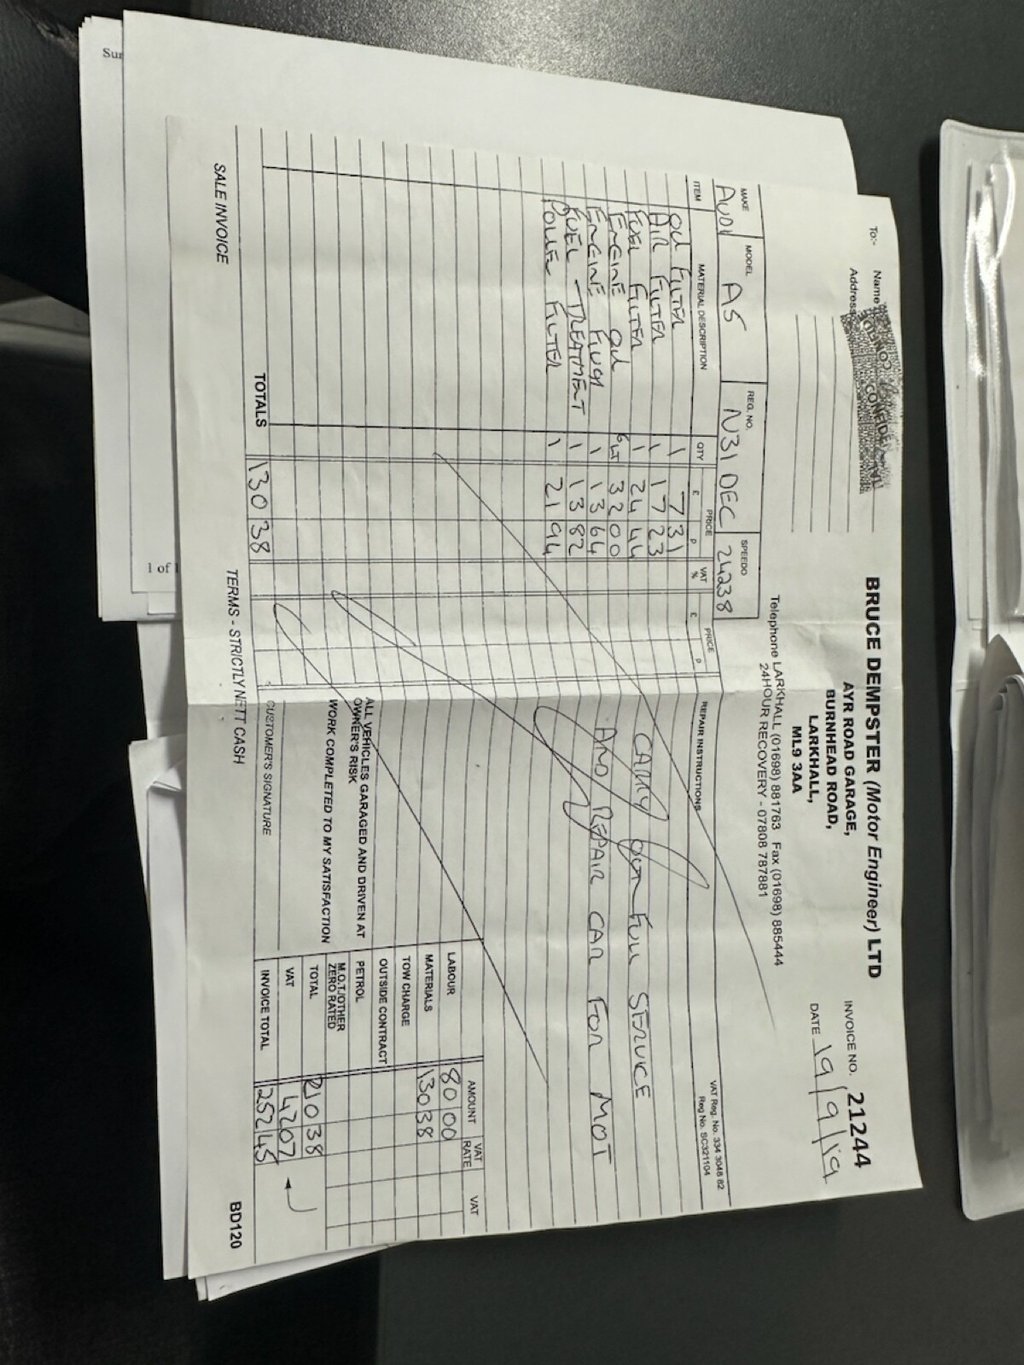 Sur
1 of 1
BRUCE DEMPSTER (Motor Engineer) LTD
AYR ROAD GARAGE,
BURNHEAD ROAD,
LARKHALL,
ML9 3AA
Telephone LARKHALL (01698) 881763 Fax (01698) 885444
24HOUR RECOVERY - 07808 787881
To:- Name
Address
INVOICE NO. 21244
DATE 19/9/19
VAT Reg. No. 334 3048 82
Reg No. SC321104
MAKE MODEL REG. NO. SPEEDO
AUDI A5 N31 DEC 24238
ITEM MATERIAL DESCRIPTION QTY PRICE £ p VAT % PRICE £ p REPAIR INSTRUCTIONS
OIL FILTER 1 7 31
AIR FILTER 1 17 23
FUEL FILTER 1 24 44
ENGINE OIL 6LT 32 00
ENGINE FLUSH 1 13 64
FUEL TREATMENT 1 13 82
POLLEN FILTER 1 21 94
CARRY OUT FULL SERVICE
AND REPAIR CAR FOR MOT
TOTALS 130 38
ALL VEHICLES GARAGED AND DRIVEN AT
OWNER'S RISK
WORK COMPLETED TO MY SATISFACTION
CUSTOMER'S SIGNATURE
AMOUNT VAT RATE VAT
LABOUR 80 00
MATERIALS 130 38
TOW CHARGE
OUTSIDE CONTRACT
PETROL
M.O.T./OTHER
ZERO RATED
TOTAL 210 38
VAT 42 07
INVOICE TOTAL 252 45
SALE INVOICE TERMS - STRICTLY NETT CASH BD120